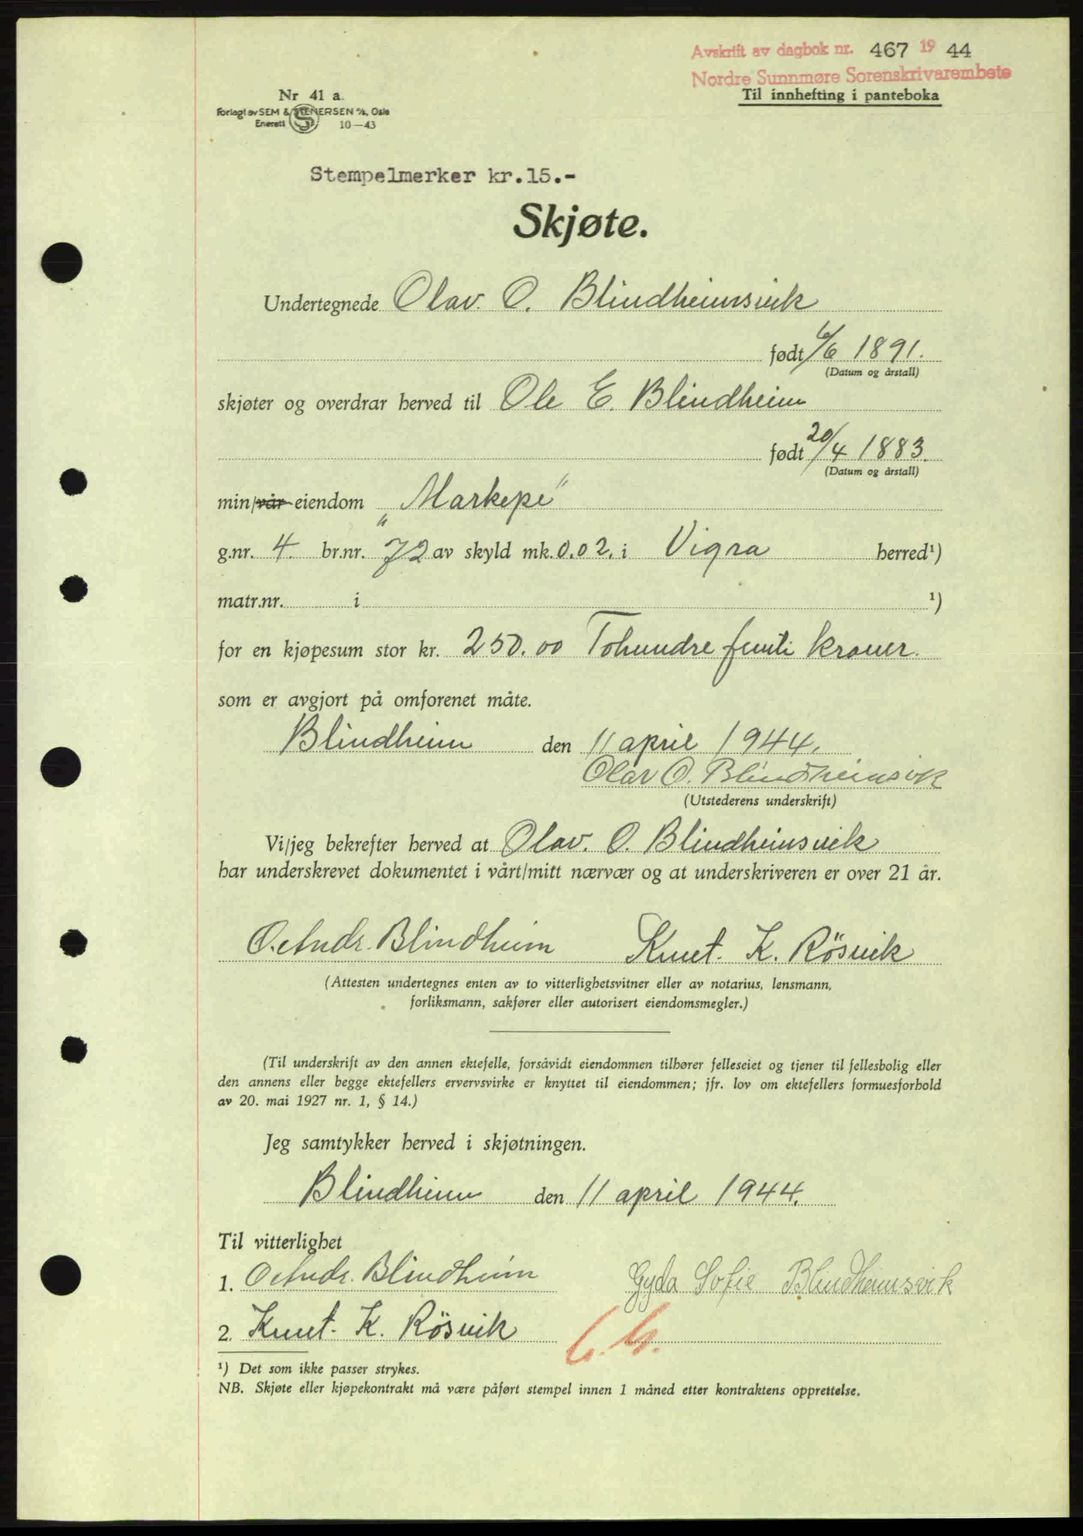 Avskrift av dagbok nr. 467 19 44
Nordre Sunnmøre Sorenskrivarembete
Til innhefting i panteboka
Nr 41 a.
Forlagt av SEM & STENERSEN A/S, Oslo
Enerett S 10—43
Stempelmerker kr.15.-
Skjøte.
Undertegnede Olav. O. Blindheimsvik
født 6/6 1891.
(Datum og årstall)
skjøter og overdrar herved til Ole E. Blindheim
født 20/4 1883.
(Datum og årstall)
min/vår eiendom „Markepe"
g.nr. 4 br.nr. 72 av skyld mk. 0.02. i Vigra herred¹)
matr.nr. i ¹)
for en kjøpesum stor kr. 250.00 Tohundre femti kroner.
som er avgjort på omforenet måte.
Blindheim den 11 april 1944.
Olav O. Blindheimsvik
(Utstederens underskrift)
Vi/jeg bekrefter herved at Olav. O. Blindheimsvik
har underskrevet dokumentet i vårt/mitt nærvær og at underskriveren er over 21 år.
O. Andr. Blindheim Knut. K. Røsvik
(Attesten undertegnes enten av to vitterlighetsvitner eller av notarius, lensmann,
forliksmann, sakfører eller autorisert eiendomsmegler.)
(Til underskrift av den annen ektefelle, forsåvidt eiendommen tilhører felleseiet og tjener til fellesbolig eller
den annens eller begge ektefellers ervervsvirke er knyttet til eiendommen; jfr. lov om ektefellers formuesforhold
av 20. mai 1927 nr. 1, § 14.)
Jeg samtykker herved i skjøtningen.
Blindheim den 11 april 1944.
Til vitterlighet
1. O Andr. Blindheim Gyda Sofie Blindheimsvik
2. Knut. K. Røsvik
¹) Det som ikke passer strykes.
NB. Skjøte eller kjøpekontrakt må være påført stempel innen 1 måned etter kontraktens opprettelse.